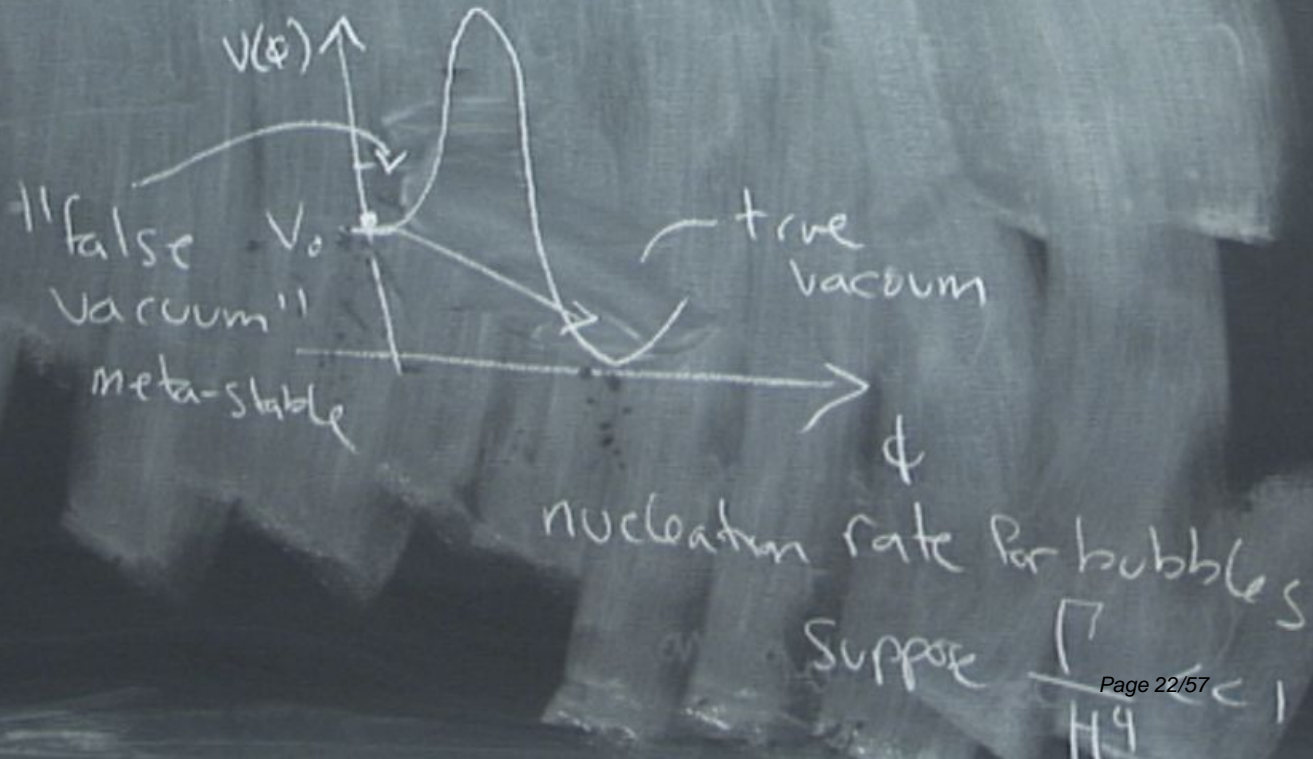 V(φ)
"false
vacuum"
meta-stable
V₀
true
vacuum
φ
nucleation rate for bubbles
Suppose Γ/H⁴ << 1
Page 22/57